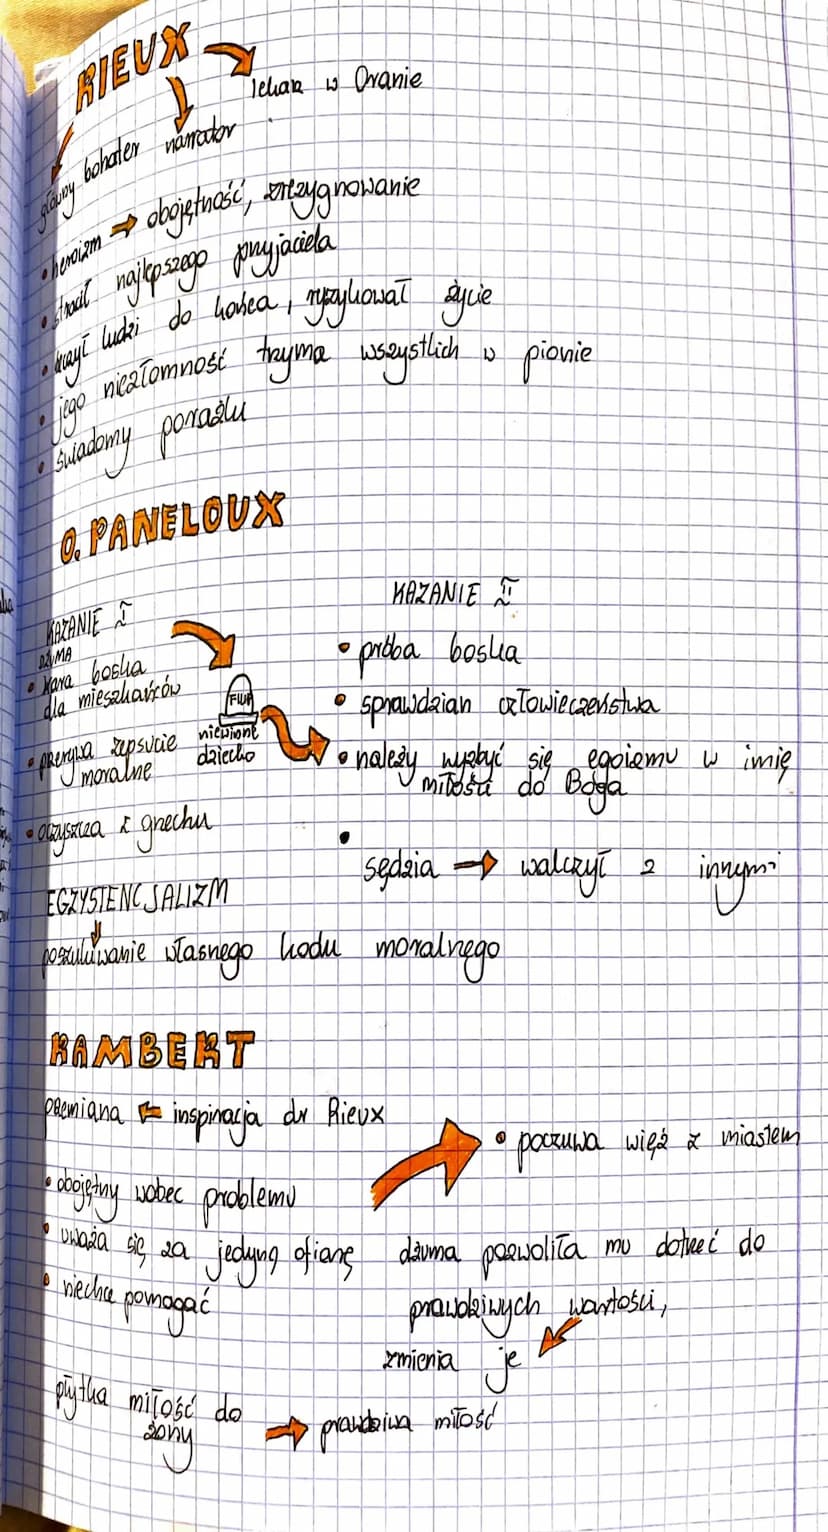 RIEUX
lekarz w Oranie
główny bohater
narrator
• heroizm → obojętność, zrezygnowanie
• stracił najlepszego przyjaciela
• leczył ludzi do końca, ryzykował życie
• jego niezłomność trzyma wszystkich w pionie
• świadomy porażki
O. PANELOUX
KAZANIE I
DŻUMA
• kara boska
dla mieszkańców
• przerywa zepsucie
moralne
• oczyszcza z grzechu
FILIP
niewinne
dziecko
KAZANIE II
• próba boska
• sprawdzian człowieczeństwa
• należy wyzbyć się egoizmu w imię
miłości do Boga
•
sędzia → walczył z innymi
EGZYSTENCJALIZM
poszukiwanie własnego kodu moralnego
RAMBERT
przemiana ← inspiracja dr Rieux
• obojętny wobec problemu
• uważa się za jedyną ofiarę
• niechce pomagać
• poczuwa więź z miastem
dżuma pozwoliła mu dotrzeć do
prawdziwych wartości,
zmienia je
płytka miłość do
żony → prawdziwa miłość